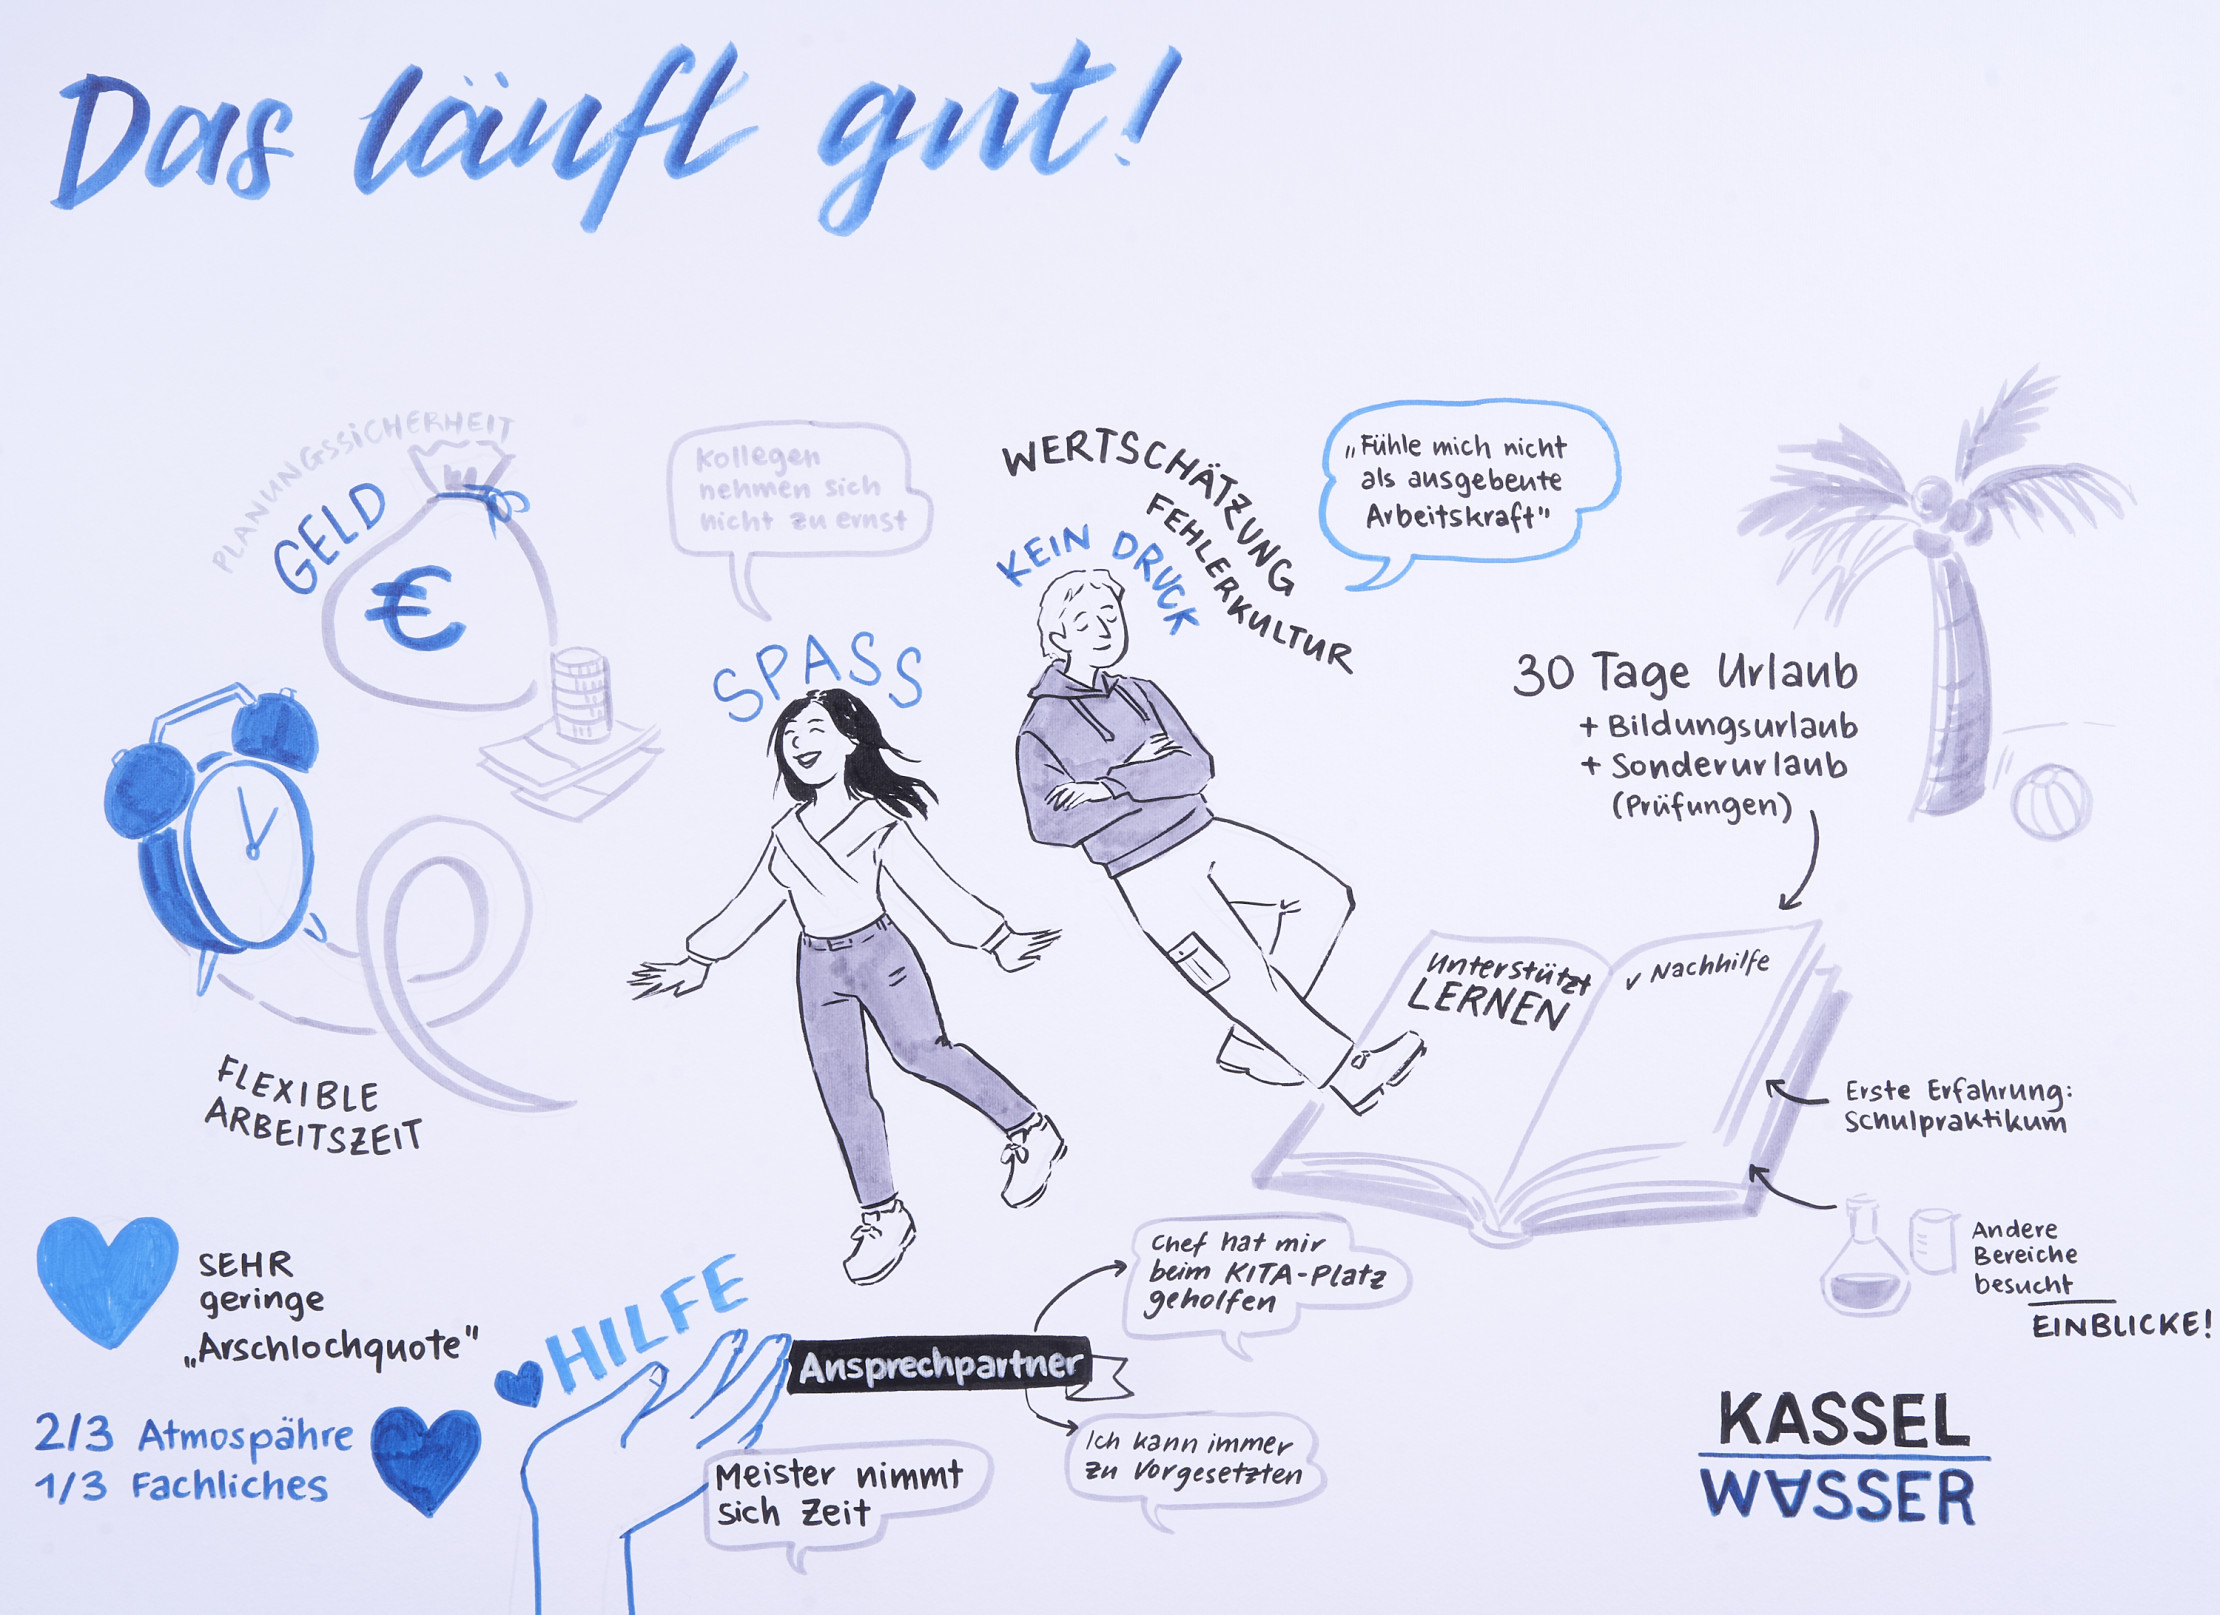 Das läuft gut!
PLANUNGSSICHERHEIT
GELD
€
FLEXIBLE
ARBEITSZEIT
Kollegen
nehmen sich
nicht zu ernst
SPASS
WERTSCHÄTZUNG
FEHLERKULTUR
KEIN DRUCK
„Fühle mich nicht
als ausgebeute
Arbeitskraft"
30 Tage Urlaub
+ Bildungsurlaub
+ Sonderurlaub
(Prüfungen)
Unterstützt
LERNEN
✓ Nachhilfe
Erste Erfahrung:
Schulpraktikum
Andere
Bereiche
besucht
EINBLICKE!
SEHR
geringe
„Arschlochquote"
2/3 Atmospähre
1/3 Fachliches
HILFE
Ansprechpartner
Chef hat mir
beim KITA-Platz
geholfen
Ich kann immer
zu Vorgesetzten
Meister nimmt
sich Zeit
KASSEL
WASSER